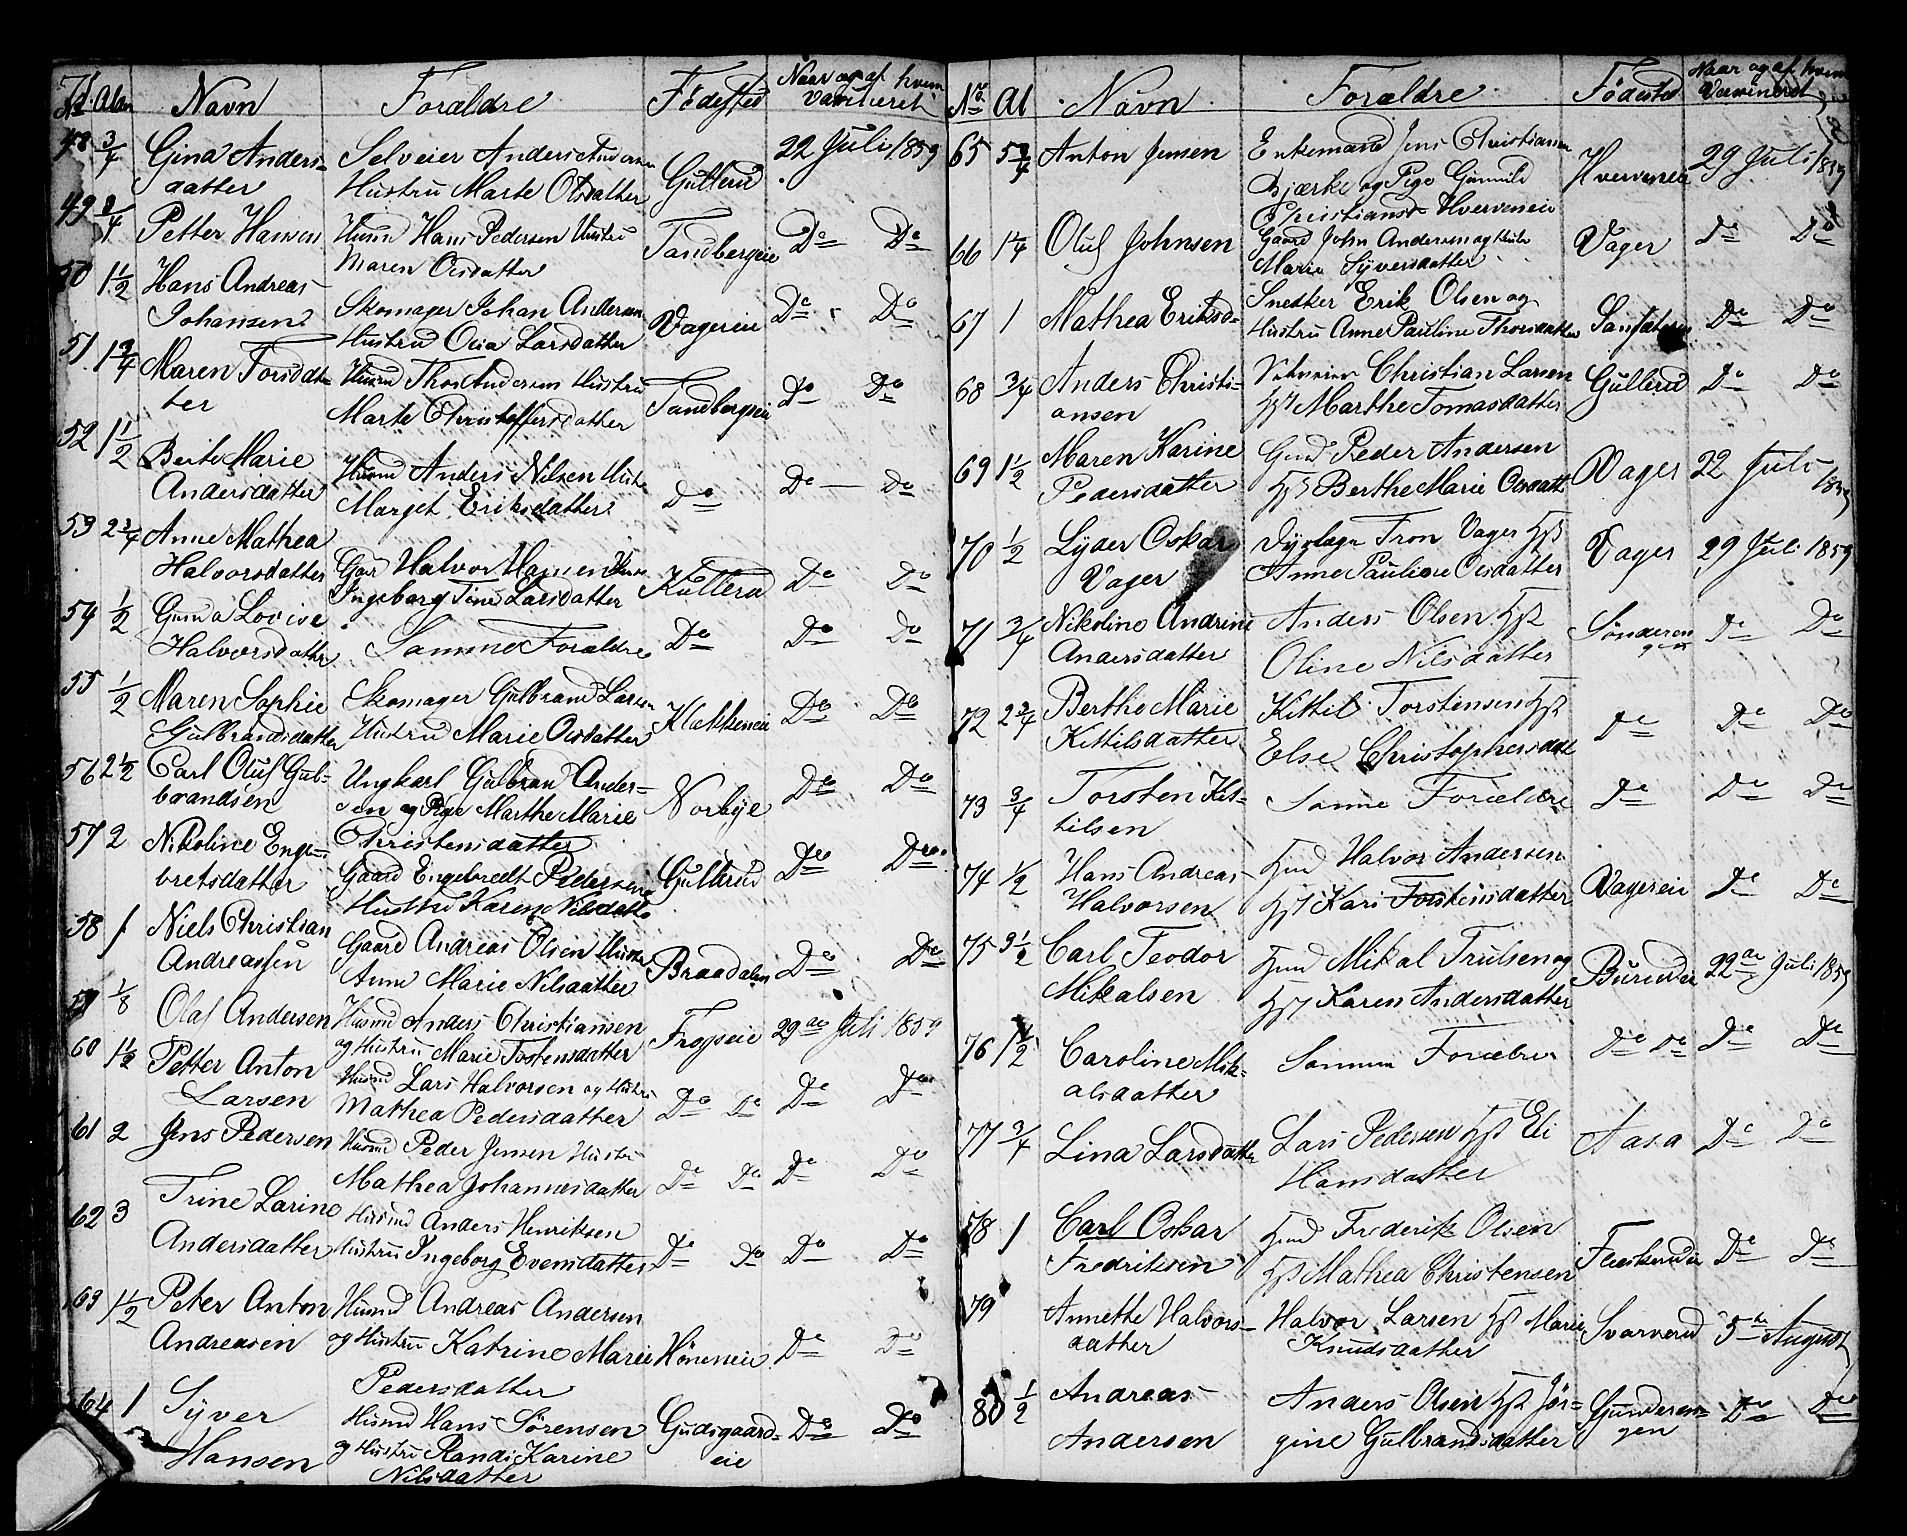 No Al Navn Forældre Fødested Naar og af hvem vaccineret
48 3/4 Gina Anders- Selveier Anders Anderse 22 Juli 1859
datter Hustru Marte Olsdatter Gullerud
49 3/4 Petter Hansen Husmd Hans Pedersen Hustru Tandbergeie Do Do
Maren Olsdatter
50 1 1/2 Hans Andreas Skomager Johan Andersen Do Do
Johansen Hustru Olia Larsdatter Vagereie
51 1 3/4 Maren Torsdat- Husmd Thor Andersen Hustru Do Do
ter Marte Christoffersdatter Tandbergeie
52 1 1/2 Berte Marie Husmd Anders Nilsen Hust
Andersdatter Marget Eriksdatter Do Do Do
53 2 3/4 Anne Mathea Gaar Halvor Hansen
Halvorsdatter Ingeborg Tine Larsdatter Kullerud Do Do
54 1/2 Gunda Lovise
Halvorsdatter Samme Forældre Do Do Do
55 1/2 Maren Sophie Skomager Gulbrand Larsen
Gulbrandsdatter Hustru Marie Olsdatter Klækkeneie Do Do
56 2 1/2 Carl Oluf Gul- Ungkarl Gulbran Anders- Do Do
brandsen en og Pige Marthe Marie Norbye
57 2 Nikoline Enge- Christensdatter
bretsdatter Gaard Engebredt Pedersen Gullerud Do Do
Hustru Karen Nilsdatte
58 1 Niels Christian Gaard Andreas Olsen Hustru
Andreassen Anne Marie Nilsdatter Braadalen Do Do
59 1/8 Olaf Andersen Husmd Anders Christiansen Frogseie 29de Juli 1859
og Hustru Marie Tostensdatter
60 1 1/2 Petter Anton Husmd Lars Halvorsen og Hustru
Larsen Mathea Pedersdatter Do Do Do Do
61 2 Jens Pedersen Husmd Peder Jensen Hustru
Mathea Johannesdatter Do Do Do Do
62 3 Trine Larine Husmd Anders Henriksen
Andersdatter Hustru Ingeborg Evensdatter Do Do Do Do
63 1 1/2 Peter Anton Husmd Andreas Andersen
Andreasen og Hustru Katrine Marie Høneneie Do Do
Pedersdatter
64 1 Syver Husmd Hans Sørensen Gudsgaard- Do Do
Hansen og Hustru Randi Karine eie
Nilsdatter
No Al Navn Forældre Fødested Naar og af hvem Vaccineret
65 5 3/4 Anton Jensen Enkemand Jens Christiansen
Bjærke og Pige Gunnild Hvervenei 29 Juli 1859
Christiansd Hverveneie
66 1 1/4 Oluf Johnsen Gaard John Andersen og Hustru Vager Do Do
Marie Syversdatter
67 1 Mathea Eriksd- Snedker Erik Olsen og
Hustru Anne Pauline Thorsdatter Do Do
68 3/4 Anders Christi- Christian Larsen Gullerud Do Do
ansen Marthe Tomasdatter
69 1 1/2 Maren Karine Gmd Peder Andersen
Pedersdatter Hst Berthe Marie Olsdatt Vager 22 Juli 1859
70 1/2 Lyder Oskar Dyrlæge Tron Vager Hst
Vager Anne Pauline Olsdatter Vager 29 Juli 1859
71 3/4 Nikoline Andrine Anders Olsen Hst
Andersdatter Oline Nilsdatter Do Do
72 2 3/4 Berthe Marie Kittil Torstensen Hst
Kittilsdatter Else Christophersdatt Do Do Do
73 3/4 Torsten Kit- Samme Forældre Do Do Do
tilsen
74 1/2 Hans Andreas Hmd Halvor Andersen
Halvorsen Hst Kari Torstensdatter Vagereie Do Do
75 3 1/2 Carl Teodor Hmd Mikal Trulsen og
Mikalsen Hst Karen Andersdatter 22de Juli 1859
76 1 1/2 Caroline Mik- Samme Forældre Do Do Do Do
alsdatter
77 3/4 Lina Larsdatte Lars Pedersen Hst Eli Aasa Do Do
Hansdatter
78 1 Carl Oskar Hmd Frederik Olsen
Fredriksen Hst Mathea Christensen Do Do
79 Annette Halvors- Halvor Larsen Hst Marie Svarverud 5te August
datter Knudsdatter
80 1/2 Andreas Anders Olsen Hst Jør- Do Do
Andersen gine Gulbrandsdatter